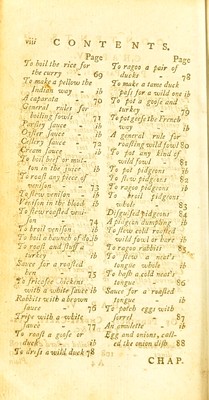 viii CONTENTS.
Page
To boil the rice for
the curry - 69
To make a pellow the
Indian way - ib
A caparata 70
General rules for
boiling fowls 71
Parsley sauce - ib
Oyster sauce ib
Cellery sauce - 72
Cream sauce ib
To boil beef or mut-
ton in the juice ib
To roast any piece of
venison - 73
To stew venison ib
Venison in the blood ib
To stew roasted veni-
son 74
To broil venison ib
To boil a haunch of do. ib
To roast and stuff a
turkey - ib
Sauce for a roasted
hen 75
To fricasee chickens
with a white sauce ib
Rabbits with a brown
sauce 76
Tripe with a white
sauce - 77
To roast a goose or
duck - ib
To dress a wild duck 78
Page
To ragoo a pair of
ducks - 78
To make a tame duck
pass for a wild one ib
To pot a goose and
turkey 79
To pot geese the French
way ib
A general rule for
roasting wild fowl 80
To pot any kind of
wild fowl - 81
To pot pidgeons ib
To stew pidgeons 82
To ragoo pidgeons ib
To broil pidgeons
whole - 83
Disguised pidgeons 84
A pidgeon dumpling ib
To stew cold roasted
wild fowl or hare ib
To ragoo rabbits 85
To stew a neat's
tongue whole ib
To hash a cold neat's
tongue 86
Sauce for a roasted
tongue - ib
To potch eggs with
sorrel 87
An amulette ib
Egg and onions, call-
ed the onion dish 88
CHAP.